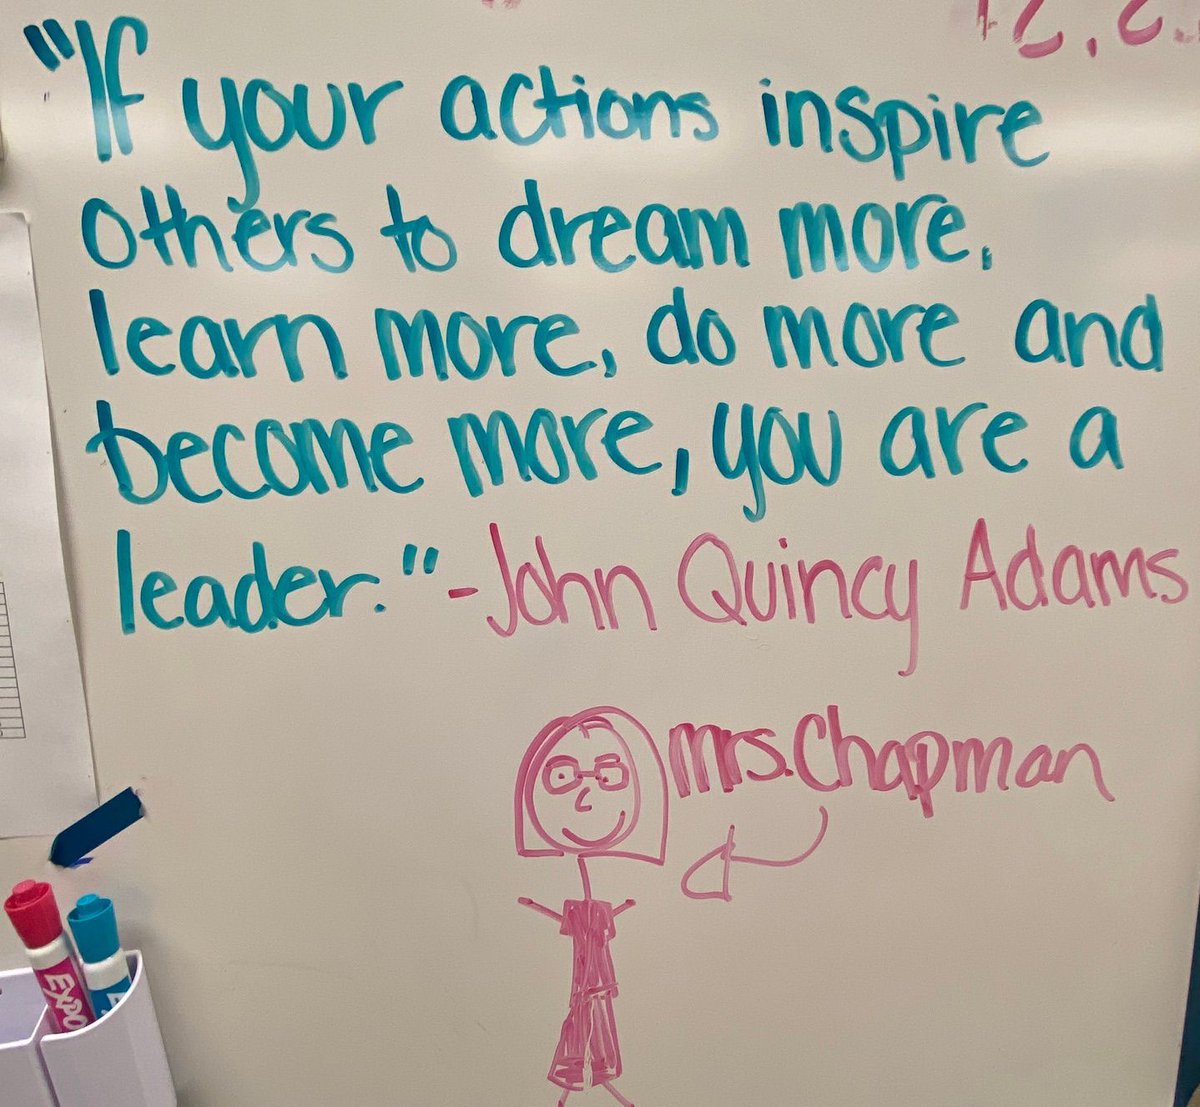 "If your actions inspire
others to dream more,
learn more, do more and
become more, you are a
leader." -John Quincy Adams
mrs. Chapman
EXPO